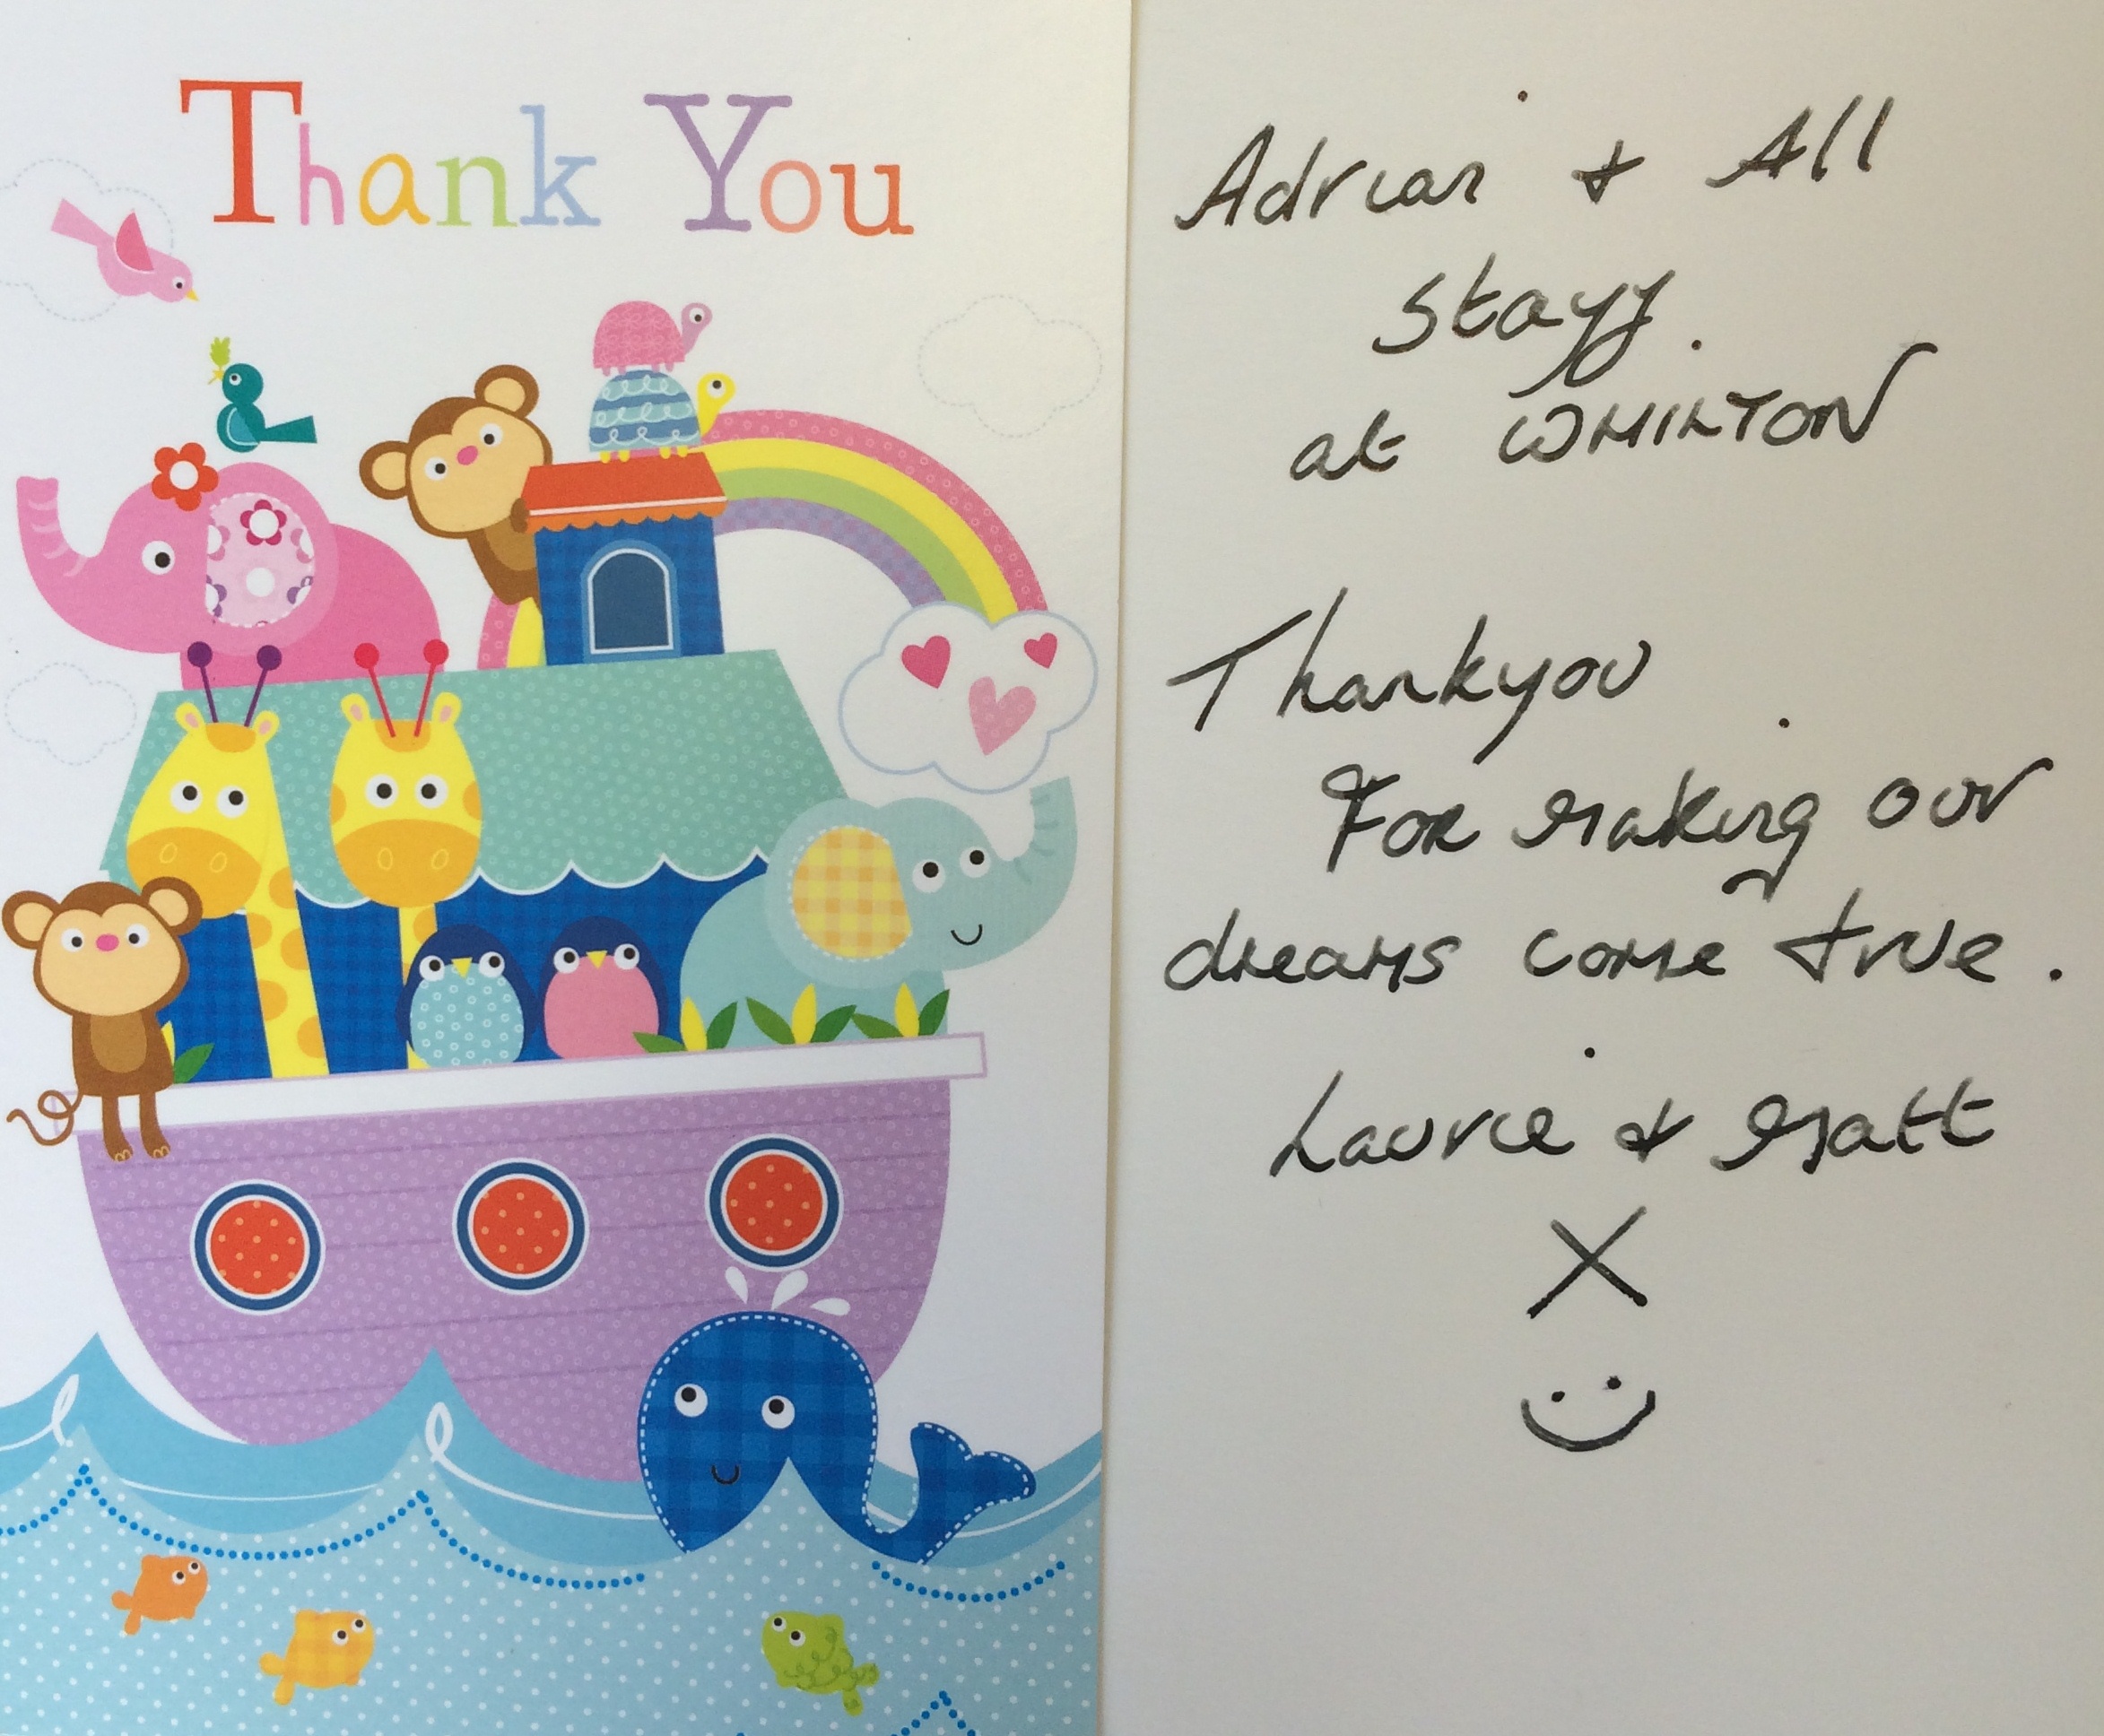 Thank You
Adrian + All
staff.
at WHILTON
Thankyou
For Making our
dreams come true.
Laurie & Matt
X